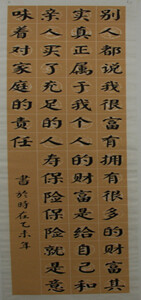 别人都说我很富有拥有很多的财富其
实真正属于我个人的财富是给自己和
亲人买了充足的人寿保险保险就是意
味着对家庭的责任
書於時在乙未年